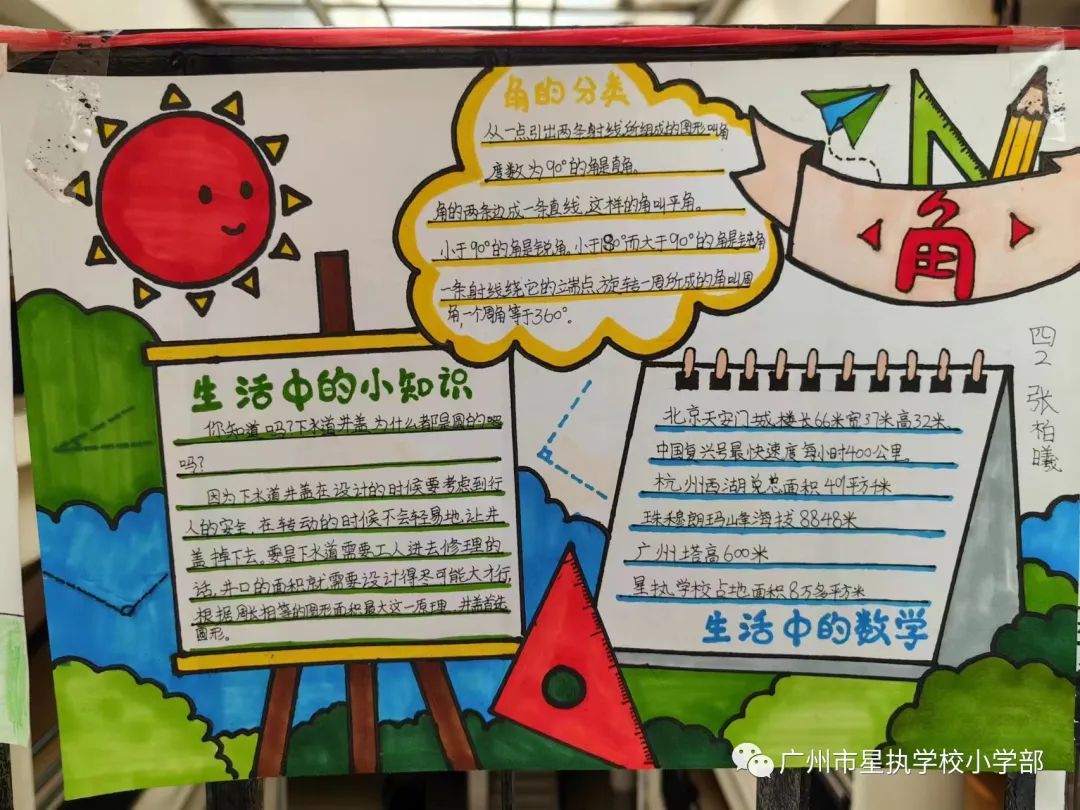 角的分类
从一点引出两条射线所组成的图形叫角
度数为90°的角是直角。
角的两条边成一条直线,这样的角叫平角。
小于90°的角是锐角,小于180°而大于90°的角是钝角
一条射线绕它的端点,旋转一周所成的角叫周
角,一个周角等于360°。
角
四2 张柏曦
生活中的小知识
你知道吗?下水道井盖为什么都是圆的呢
吗?
因为下水道井盖在设计的时候要考虑到行
人的安全,在转动的时候不会轻易地让井
盖掉下去。要是下水道需要工人进去修理的
话,井口的面积就需要设计得尽可能大才行,
根据周长相等的图形面积最大这一原理,井盖首选
圆形。
北京天安门城楼长66米宽37米高32米。
中国复兴号最快速度每小时400公里。
杭州西湖总面积49平方千米
珠穆朗玛峰海拔8848米
广州塔高600米
星执学校占地面积8万多平方米
生活中的数学
广州市星执学校小学部